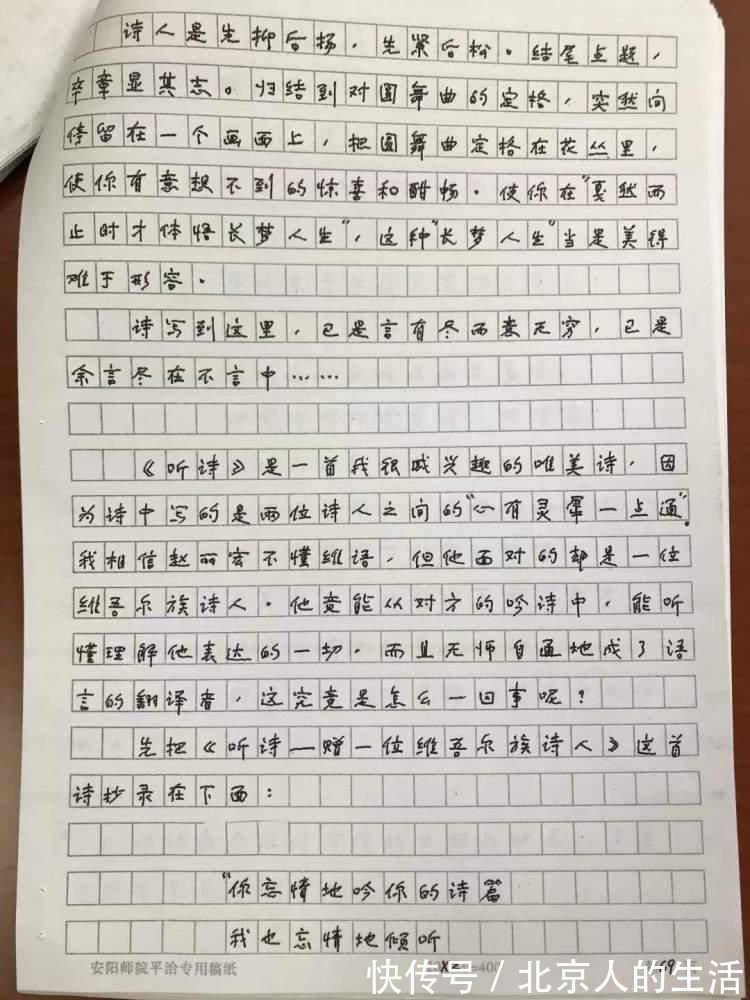 诗人是先抑后扬，先紧后松。结尾点题，
卒章显其志。归结到对圆舞曲的定格，突然间
停留在一个画面上，把圆舞曲定格在花丛里，
使你有意想不到的惊喜和酣畅。使你在“戛然而
止时才体悟长梦人生”，这种“长梦人生”当是美得
难于形容。
诗写到这里，已是言有尽而意无穷，已是
余言尽在不言中……
《听诗》是一首我很感兴趣的唯美诗，因
为诗中写的是两位诗人之间的“心有灵犀一点通”。
我相信赵丽宏不懂维语，但他面对的却是一位
维吾尔族诗人。他竟能从对方的吟诗中，能听
懂理解他表达的一切，而且无师自通地成了语
言的翻译者，这究竟是怎么一回事呢？
先把《听诗—赠一位维吾尔族诗人》这首
诗抄录在下面：
“你忘情地吟你的诗篇
我也忘情地倾听
安阳师院平治专用稿纸
=400
69
快传号 / 北京人的生活